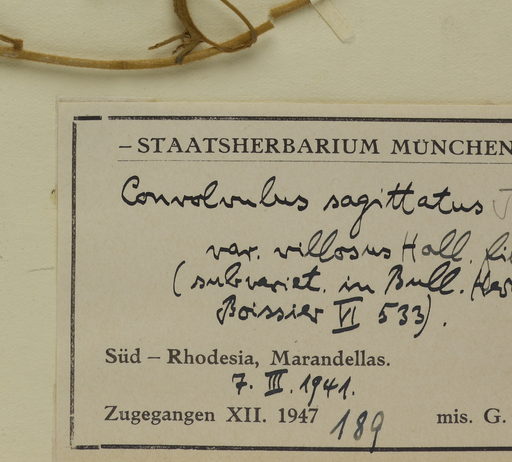 – STAATSHERBARIUM MÜNCHEN
Convolvulus sagittatus
var. villosus Hall. fil
(subvariet. in Bull. Her
Boissier VI 533).
Süd – Rhodesia, Marandellas.
7. III. 1941.
Zugegangen XII. 1947 189 mis. G.